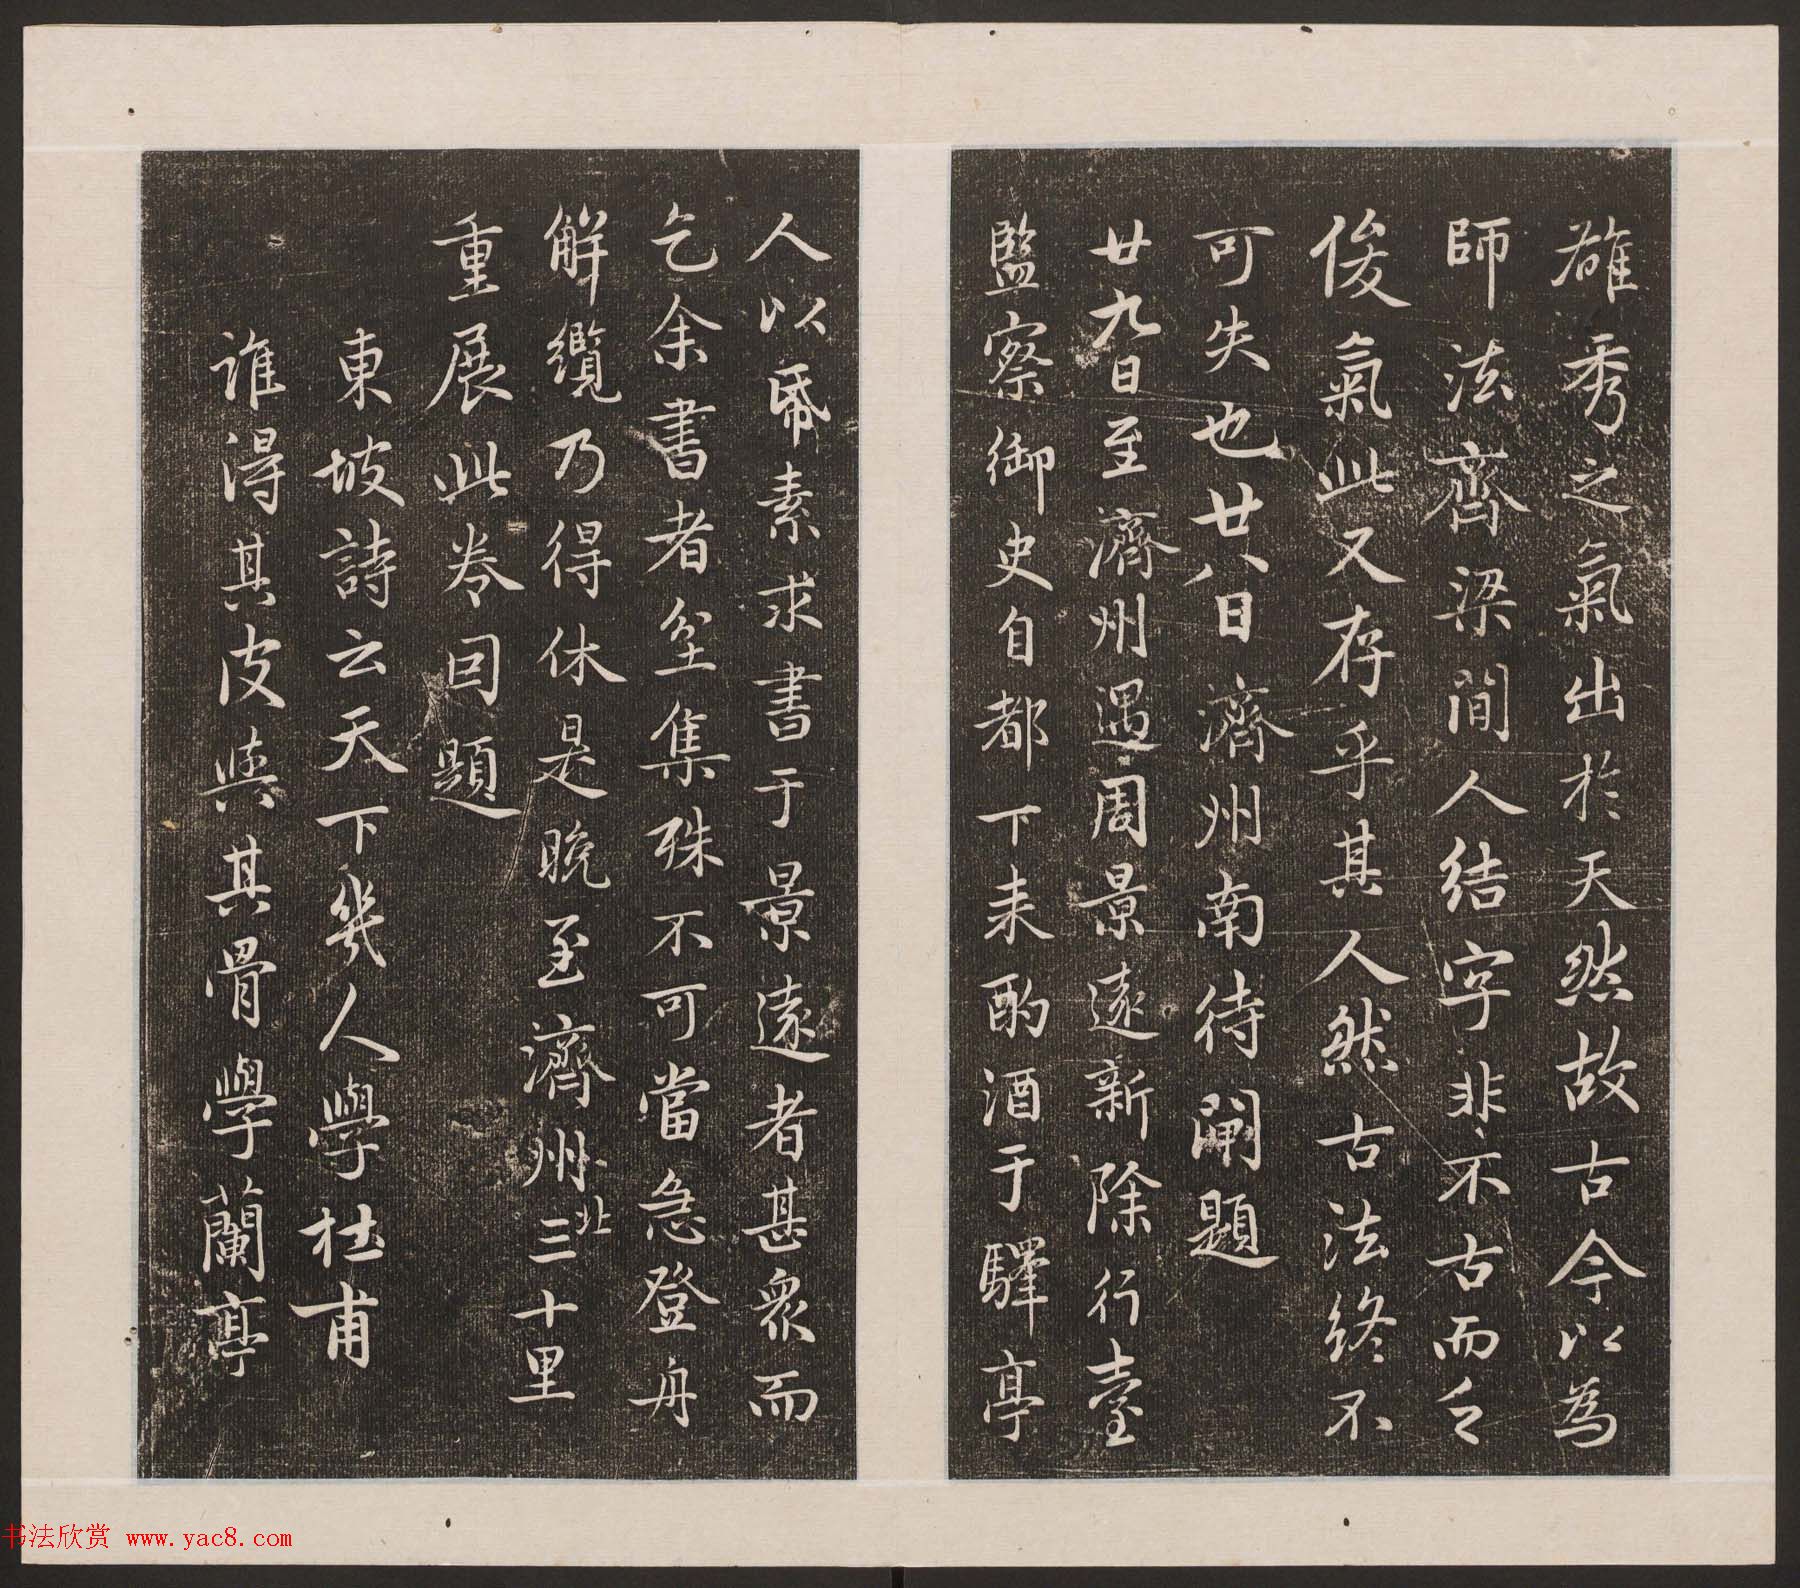 雄秀之氣出於天然故古今以為
師法齊梁間人結字非不古而乏
俊氣此又存乎其人然古法終不
可失也廿八日濟州南待閘題
廿九日至濟州遇周景遠新除行臺
監察御史自都下来酌酒于驛亭
人以帋素求書于景遠者甚衆而
乞余書者坌集殊不可當急登舟
解纜乃得休是晚至濟州北三十里
重展此卷囙題
東坡詩云天下幾人學杜甫
誰得其皮與其骨學蘭亭
书法欣赏 www.yac8.com